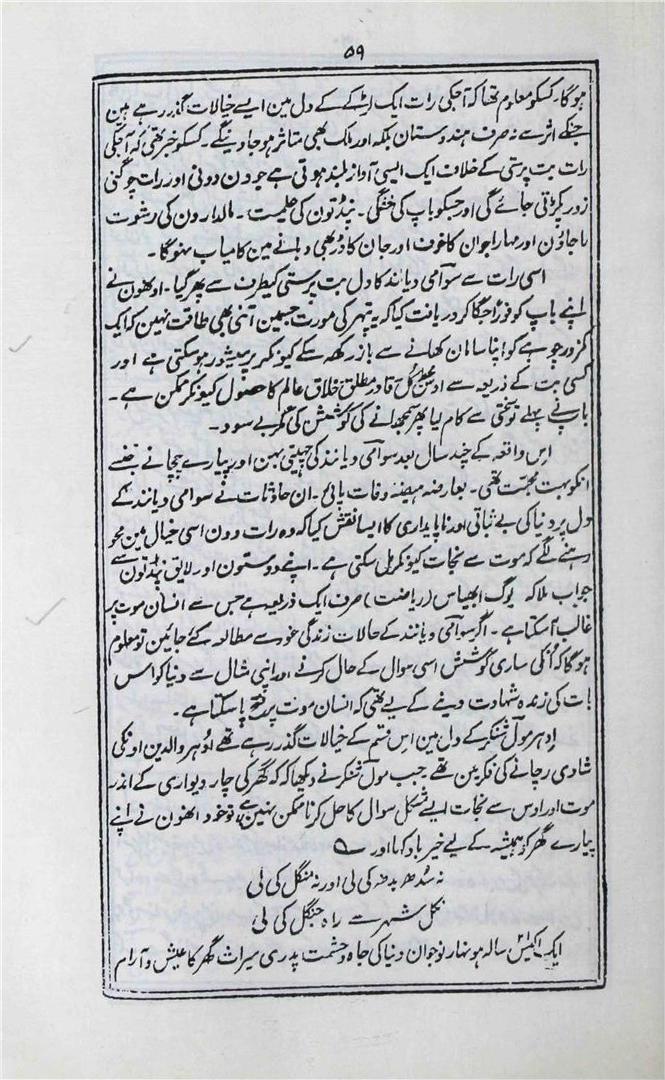 ۵۹
ہوگا۔ کسکو معلوم تھا کہ آجکی رات ایک لڑکے کے دل مین ایسے خیالات گذر رہے ہین
جنکے اثر سے نہ صرف ہندوستان بلکہ اور ملک بھی متاثر ہو جاوینگے۔ کسکو خبر تھی کہ آجکی
رات بت پرستی کے خلاف ایک ایسی آواز بلند ہوتی ہے جو دن دونی اور رات چوگنی
زور پکڑتی جائے گی اور جسکو باپ کی خفگی۔ پنڈتون کی علمیت۔ مالدارون کی رشوت
راجاؤن اور مہاراجوان کا خوف اور جان کا ڈر بھی دبانے مین کامیاب نہوگا۔
اسی رات سے سوآمی دیانند کا دل بت پرستی کیطرف سے پھر گیا۔ اونھون نے
اپنے باپ کو فوراً جگا کر دریافت کیا کہ یہ پتھر کی مورت جسمین اتنی بھی طاقت نہین کہ ایک
کمزور چوہے کو اپنا سامان کھانے سے باز رکھہ سکے کیونکر پرمیشور ہو سکتی ہے اور
کسی بت کے ذریعہ سے اوس کل قادر مطلق خلاق عالم کا حصول کیونکر ممکن ہے۔
باپ نے پہلے تو سختی سے کام لیا پھر سمجھانے کی کوشش کی مگر بے سود۔
اِس واقعہ کے چند سال بعد سوآمی دیانند کی چہیتی بہن اور پیارے چچا نے جنسے
انکو بہت محبت تھی۔ بعارضہ ہیضہ وفات پائی۔ ان حادثات نے سوامی دیانند کے
دل پر دنیا کی بے ثباتی اور ناپایداری کا ایسا نقش کیا کہ وہ رات و دن اسی خیال مین محو
رہنے لگے کہ موت سے نجات کیونکر مل سکتی ہے۔ اپنے دوستون اور لایق پنڈتون سے
جواب ملا کہ یوگ ابھیاس (ریاضت) صرف ایک ذریعہ ہے جس سے انسان موت پر
غالب آسکتا ہے۔ اگر سوآمی دیانند کے حالات زندگی غور سے مطالعہ کئے جائین تو معلوم
ہوگا کہ اُنکی ساری کوشش اسی سوال کے حال کرنے اور اپنی مثال سے دنیا کو اس
بات کی زندہ شہادت دینے کے لیے تھی کہ انسان موت پر فتح پا سکتا ہے۔
اِدہر مول شنکر کے دل مین اس قسم کے خیالات گذر رہے تھے اُدہر والدین اونکی
شادی رچانے کی فکر مین تھے۔ جب مول شنکر نے دیکھا کہ کہ گھر کی چار دیواری کے اندر
موت اور اوس سے نجات ایسے مشکل سوال کا حل کرنا ممکن نہین ہے تو خود انھون نے اپنے
پیارے گھر کو ہمیشہ کے لیے خیر باد کہا اور ؎
نہ سُدھ بدھ کی لی اور نہ منگل کی لی
نکل شہر سے راہ جنگل کی لی
ایک اکیس سالہ ہونہار نوجوان دنیا کی جاہ و حشمت پدری میراث گھر کا عیش و آرام